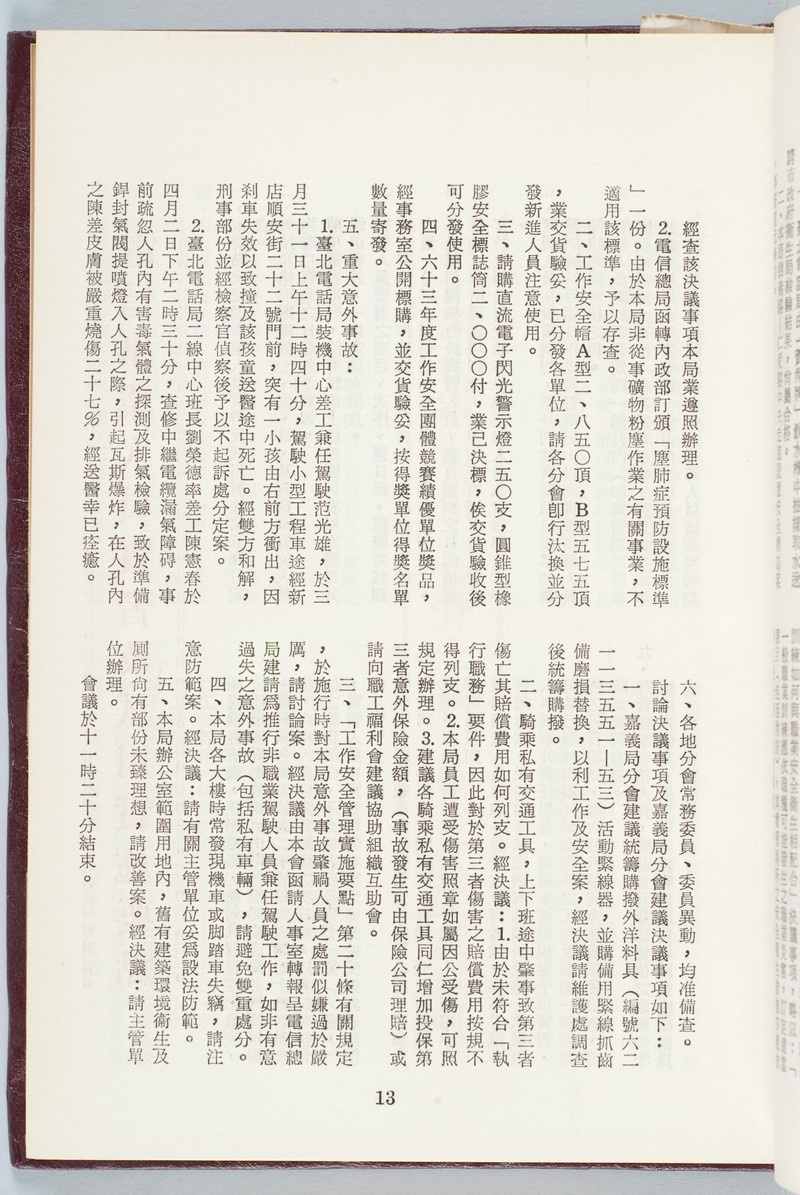 經查該決議事項本局業遵照辦理。
2.電信總局函轉內政部訂頒「塵肺症預防設施標準
」一份。由於本局非從事礦物粉塵作業之有關事業，不
適用該標準，予以存查。
二、工作安全帽A型二、八五〇頂，B型五七五頂
，業交貨驗妥，已分發各單位，請各分會卽行汰換並分
發新進人員注意使用。
三、請購直流電子閃光警示燈二五〇支，圓錐型橡
膠安全標誌筒二、〇〇〇付，業已決標，俟交貨驗收後
可分發使用。
四、六十三年度工作安全團體競賽績優單位獎品，
經事務室公開標購，並交貨驗妥，按得獎單位得獎名單
數量寄發。
五、重大意外事故：
1.臺北電話局裝機中心差工兼任駕駛范光雄，於三
月三十一日上午十二時四十分，駕駛小型工程車途經新
店順安街二十二號門前，突有一小孩由右前方衝出，因
剎車失效以致撞及該孩童送醫途中死亡。經雙方和解，
刑事部份並經檢察官偵察後予以不起訴處分定案。
2.臺北電話局二線中心班長劉榮德率差工陳憲春於
四月二日下午二時三十分，查修中繼電纜漏氣障碍，事
前疏忽人孔內有害毒氣體之探測及排氣檢驗，致於準備
銲封氣閥提噴燈入人孔之際，引起瓦斯爆炸，在人孔內
之陳差皮膚被嚴重燒傷二十七%，經送醫幸已痊癒。
六、各地分會常務委員、委員異動，均准備查。
討論決議事項及嘉義局分會建議決議事項如下：
一、嘉義局分會建議統籌購撥外洋料具（編號六二
一一三五五一—五三）活動緊線器，並購備用緊線抓齒
備磨損替換，以利工作及安全案，經決議請維護處調查
後統籌購撥。
二、騎乘私有交通工具，上下班途中肇事致第三者
傷亡其賠償費用如何列支。經決議：1.由於未符合「執
行職務」要件，因此對於第三者傷害之賠償費用按規不
得列支。2.本局員工遭受傷害照章如屬因公受傷，可照
規定辦理。3.建議各騎乘私有交通工具同仁增加投保第
三者意外保險金額，（事故發生可由保險公司理賠）或
請向職工福利會建議協助組織互助會。
三、「工作安全管理實施要點」第二十條有關規定
，於施行時對本局意外事故肇禍人員之處罰似嫌過於嚴
厲，請討論案。經決議由本會函請人事室轉報呈電信總
局建請爲推行非職業駕駛人員兼任駕駛工作，如非有意
過失之意外事故（包括私有車輛），請避免雙重處分。
四、本局各大樓時常發現機車或脚踏車失竊，請注
意防範案。經決議：請有關主管單位妥爲設法防範。
五、本局辦公室範圍用地內，舊有建築環境衛生及
厠所尙有部份未臻理想，請改善案。經決議：請主管單
位辦理。
會議於十一時二十分結束。
13